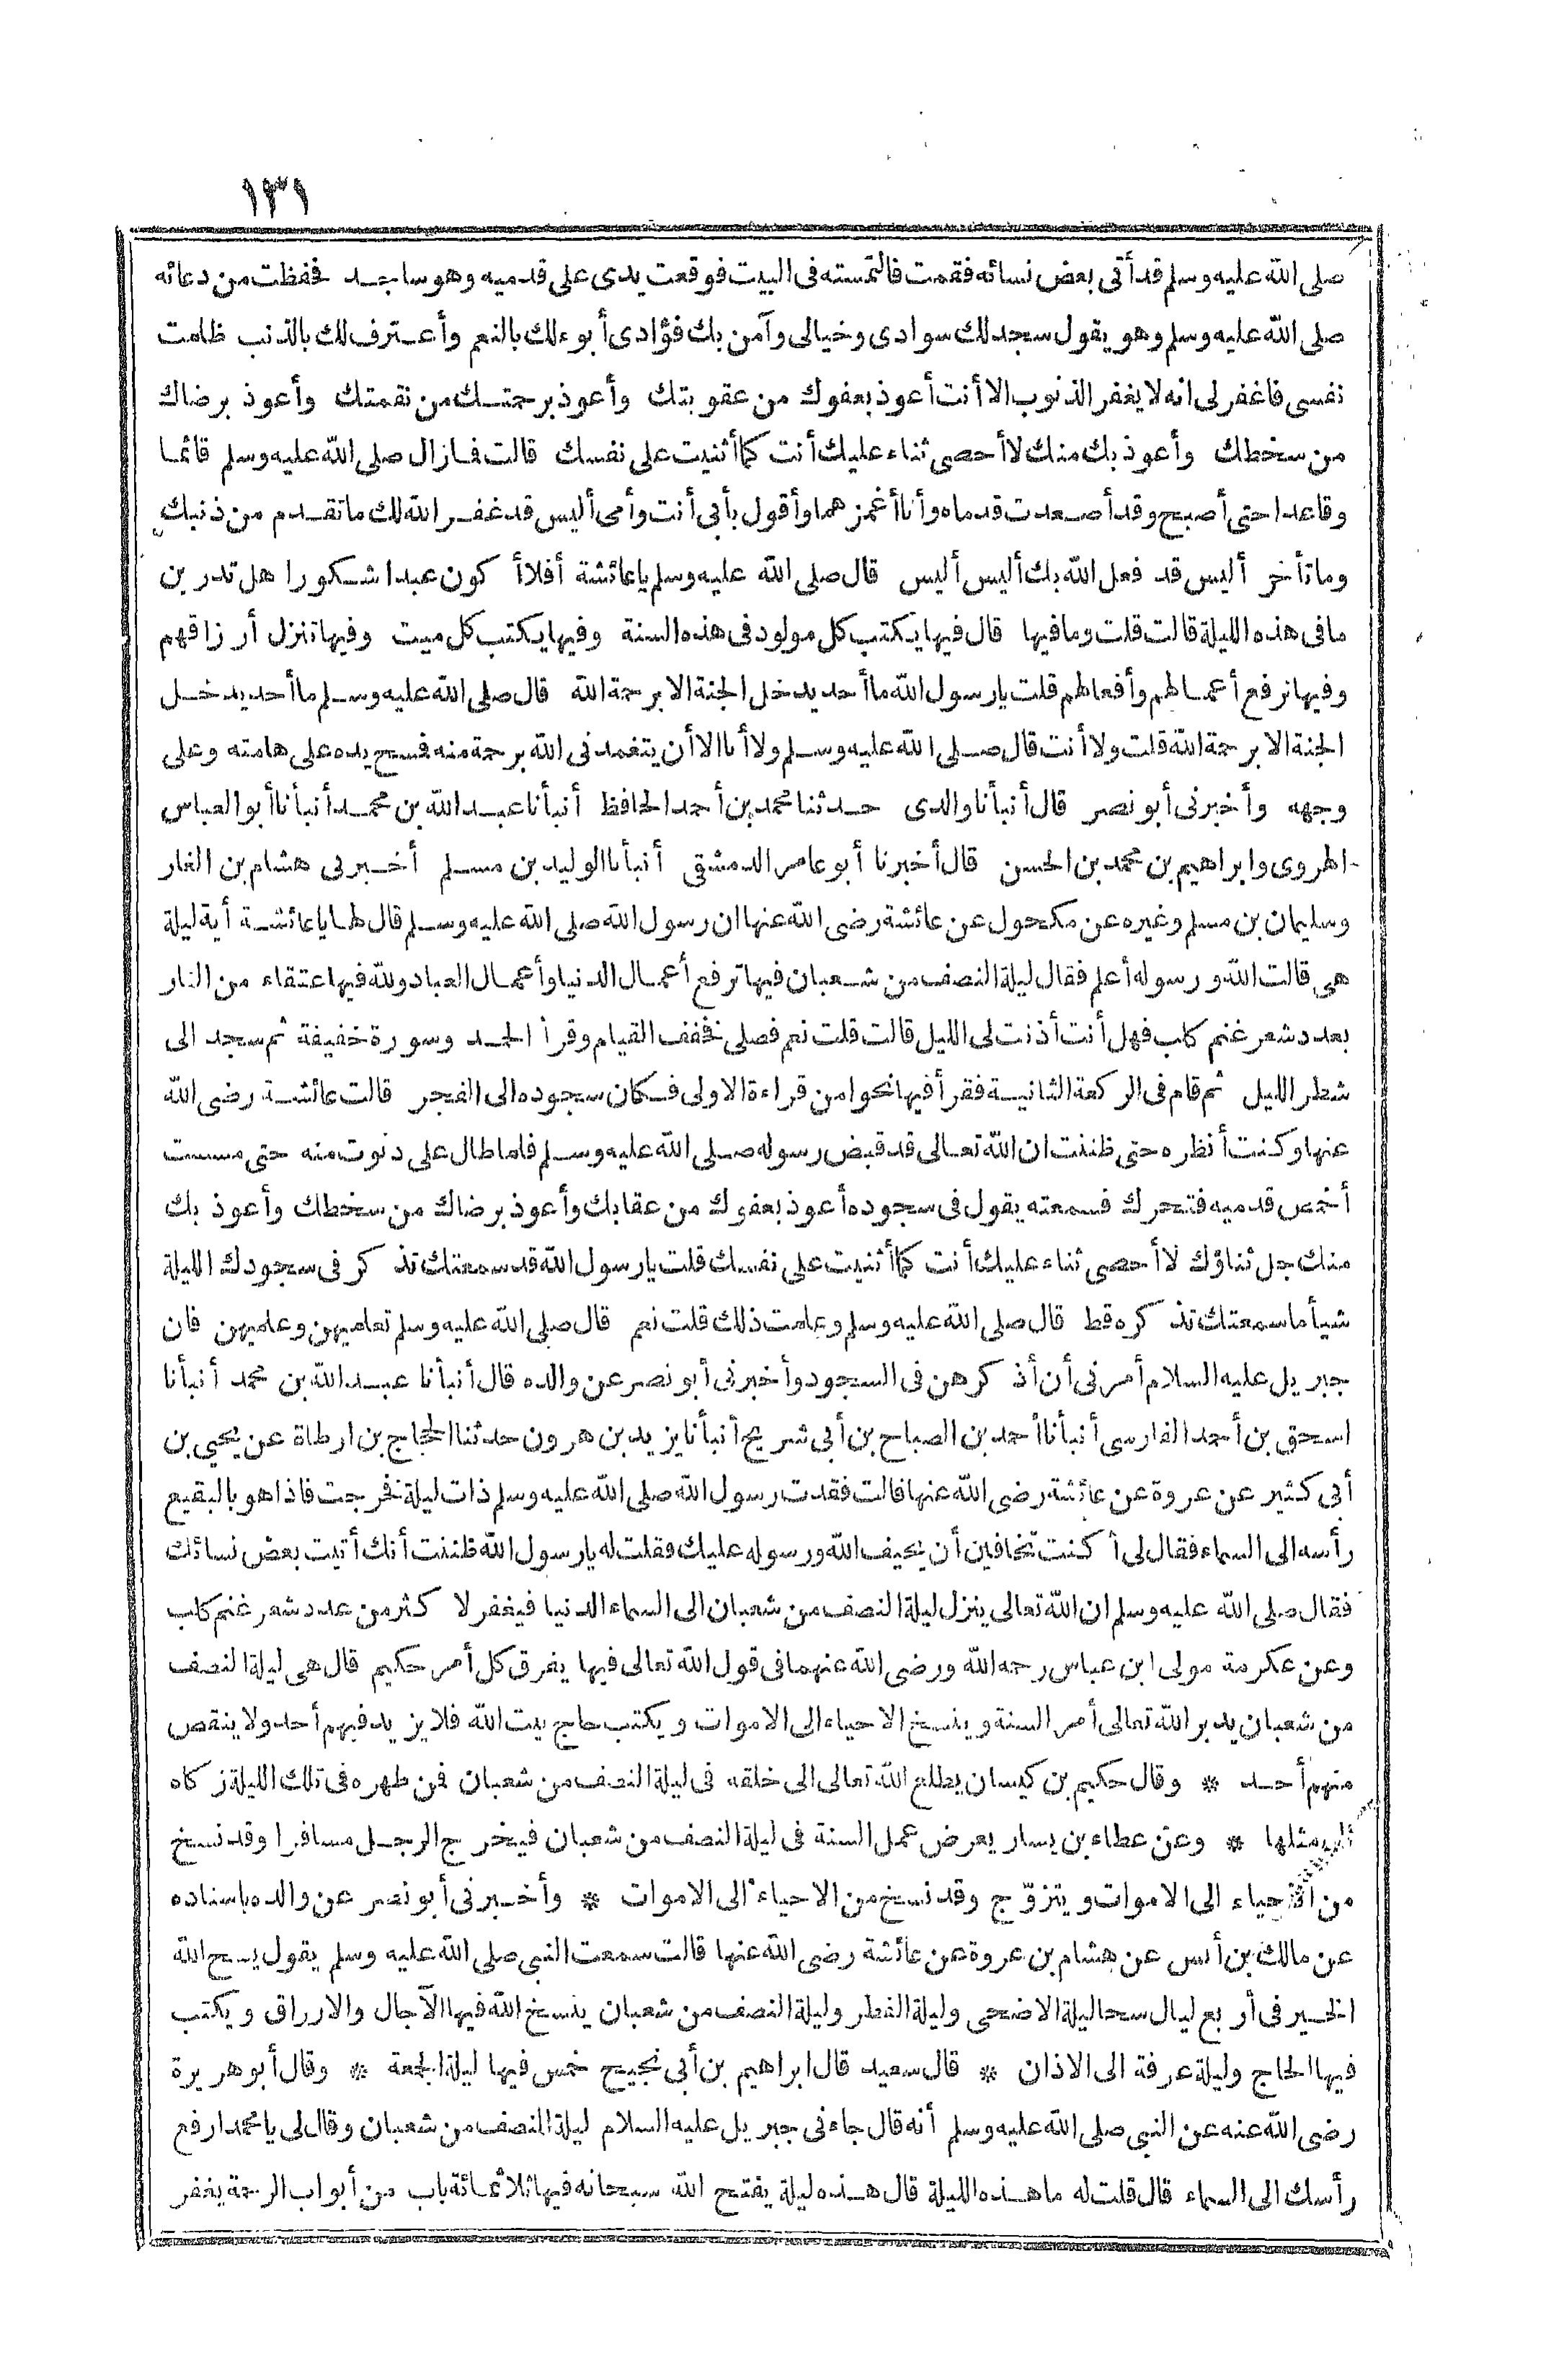 ١٣١
صلى الله عليه وسلم قد أتى بعض نسائه فقمت فالتمسته فى البيت فوقعت يدى على قدميه وهو ساجد فحفظت من دعائه
صلى الله عليه وسلم وهو يقول سجد لك سوادى وخيالى وآمن بك فؤادى أبوء لك بالنعم وأعترف لك بالذنب ظلمت
نفسى فاغفر لى انه لا يغفر الذنوب الا أنت أعوذ بعفوك من عقوبتك وأعوذ برحمتك من نقمتك وأعوذ برضاك
من سخطك وأعوذ بك منك لا أحصى ثناء عليك أنت كما أثنيت على نفسك قالت فما زال صلى الله عليه وسلم قائما
وقاعدا حتى أصبح وقد أصعدت قدماه وأنا أغمزهما وأقول بأبى أنت وأمى أليس قد غفر الله لك ما تقدم من ذنبك
وما تأخر أليس قد فعل الله بك أليس أليس قال صلى الله عليه وسلم يا عائشة أفلا أكون عبدا شكورا هل تدرين
ما فى هذه الليلة قالت قلت وما فيها قال فيها يكتب كل مولود فى هذه السنة وفيها يكتب كل ميت وفيها تنزل أرزاقهم
وفيها ترفع أعمالهم وأفعالهم قلت يا رسول الله ما أحد يدخل الجنة الا برحمة الله قال صلى الله عليه وسلم ما أحد يدخل
الجنة الا برحمة الله قلت ولا أنت قال صلى الله عليه وسلم ولا أنا الا أن يتغمدنى الله برحمة منه فمسح يده على هامته وعلى
وجهه وأخبرنى أبو نصر قال أنبأنا والدى حدثنا محمد بن أحمد الحافظ أنبأنا عبد الله بن محمد أنبأنا أبو العباس
الهروى وابراهيم بن محمد بن الحسن قال أخبرنا أبو عامر الدمشقى أنبأنا الوليد بن مسلم أخبرنى هشام بن الغار
وسليمان بن مسلم وغيره عن مكحول عن عائشة رضى الله عنها ان رسول الله صلى الله عليه وسلم قال لها يا عائشة أية ليلة
هى قالت الله ورسوله أعلم فقال ليلة النصف من شعبان فيها ترفع أعمال الدنيا وأعمال العباد ولله فيها عتقاء من النار
بعدد شعر غنم كلب فهل أنت أذنت لى الليل قالت قلت نعم فصلى فخفف القيام وقرأ الحمد وسورة خفيفة ثم سجد الى
شطر الليل ثم قام فى الركعة الثانية فقرأ فيها نحوا من قراءة الاولى فكان سجوده الى الفجر قالت عائشة رضى الله
عنها وكنت أنظره حتى ظننت ان الله تعالى قد قبض رسوله صلى الله عليه وسلم فلما طال على دنوت منه حتى مسست
أخمص قدميه فتحرك فسمعته يقول فى سجوده أعوذ بعفوك من عقابك وأعوذ برضاك من سخطك وأعوذ بك
منك جل ثناؤك لا أحصى ثناء عليك أنت كما أثنيت على نفسك قلت يا رسول الله قد سمعتك تذكر فى سجودك الليلة
شيأ ما سمعتك تذكره قط قال صلى الله عليه وسلم وعلمت ذلك قلت نعم قال صلى الله عليه وسلم تعلميهن وعلميهن فان
جبريل عليه السلام أمرنى أن أذكرهن فى السجود وأخبرنى أبو نصر عن والده قال أنبأنا عبد الله بن محمد أنبأنا
اسحق بن أحمد الفارسى أنبأنا أحمد بن الصباح بن أبى شريح أنبأنا يزيد بن هرون حدثنا الحجاج بن ارطاة عن يحيى بن
أبى كثير عن عروة عن عائشة رضى الله عنها قالت فقدت رسول الله صلى الله عليه وسلم ذات ليلة فخرجت فاذا هو بالبقيع
رأسه الى السماء فقال لى أكنت تخافين أن يحيف الله ورسوله عليك فقلت له يا رسول الله ظننت أنك أتيت بعض نسائك
فقال صلى الله عليه وسلم ان الله تعالى ينزل ليلة النصف من شعبان الى السماء الدنيا فيغفر لاكثر من عدد شعر غنم كلب
وعن عكرمة مولى ابن عباس رحمه الله ورضى الله عنهما فى قول الله تعالى فيها يفرق كل أمر حكيم قال هى ليلة النصف
من شعبان يدبر الله تعالى أمر السنة وينسخ الاحياء الى الاموات ويكتب حاج بيت الله فلا يزيد فيهم أحد ولا ينقص
منهم أحد * وقال حكيم بن كيسان يطلع الله تعالى الى خلقه فى ليلة النصف من شعبان فمن طهره فى تلك الليلة زكاه
الى مثلها * وعن عطاء بن يسار يعرض عمل السنة فى ليلة النصف من شعبان فيخرج الرجل مسافرا وقد نسخ
من الاحياء الى الاموات ويتزوّج وقد نسخ من الاحياء الى الاموات * وأخبرنى أبو نصر عن والده باسناده
عن مالك بن أنس عن هشام بن عروة عن عائشة رضى الله عنها قالت سمعت النبى صلى الله عليه وسلم يقول يسح الله
الخير فى أربع ليال سحا ليلة الاضحى وليلة الفطر وليلة النصف من شعبان ينسخ الله فيها الآجال والارزاق ويكتب
فيها الحاج وليلة عرفة الى الاذان * قال سعيد قال ابراهيم بن أبى نجيح خمس فيها ليلة الجمعة * وقال أبو هريرة
رضى الله عنه عن النبى صلى الله عليه وسلم أنه قال جاءنى جبريل عليه السلام ليلة النصف من شعبان وقال لى يا محمد ارفع
رأسك الى السماء قال قلت له ما هذه الليلة قال هذه ليلة يفتح الله سبحانه فيها ثلاثمائة باب من أبواب الرحمة يغفر